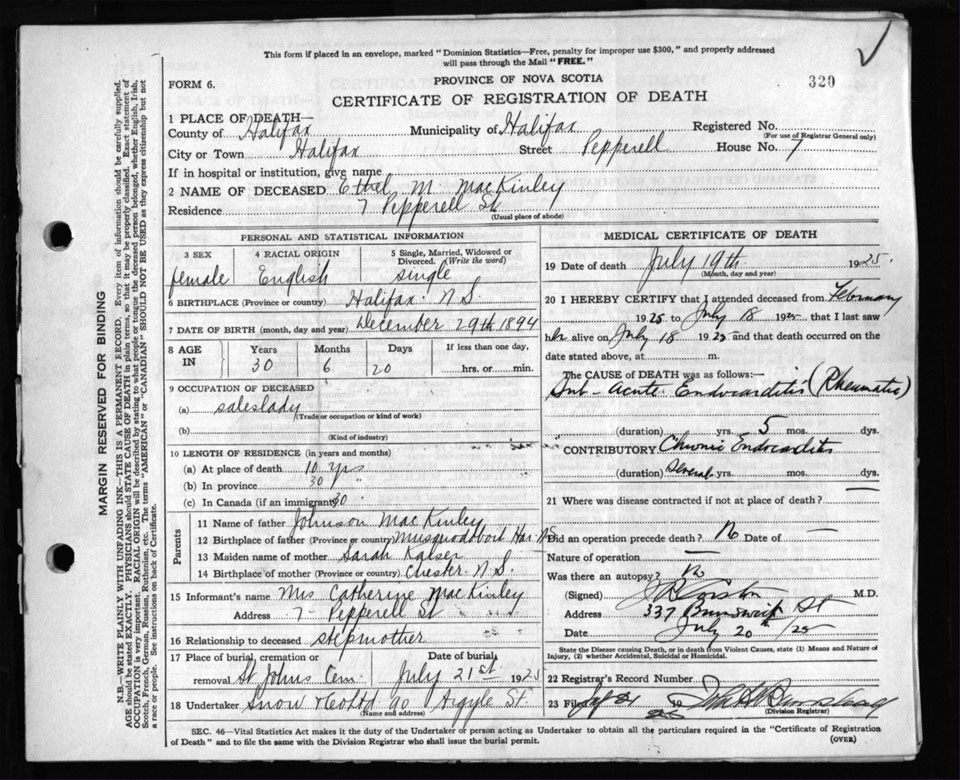 This form if placed in an envelope, marked "Dominion Statistics—Free, penalty for improper use $300," and properly addressed
will pass through the Mail "FREE."
320
FORM 6.
PROVINCE OF NOVA SCOTIA
CERTIFICATE OF REGISTRATION OF DEATH
1 PLACE OF DEATH—
County of Halifax Municipality of Halifax Registered No.
(For use of Registrar General only)
City or Town Halifax Street Pepperell House No. 7
If in hospital or institution, give name
2 NAME OF DECEASED Ethel M. MacKinley
Residence 7 Pepperell St
(Usual place of abode)
PERSONAL AND STATISTICAL INFORMATION
3 SEX 4 RACIAL ORIGIN 5 Single, Married, Widowed or Divorced. (Write the word)
female English single
6 BIRTHPLACE (Province or country) Halifax N.S.
7 DATE OF BIRTH (month, day and year) December 29th 1894
8 AGE IN Years Months Days If less than one day,
30 6 20 hrs. or min.
9 OCCUPATION OF DECEASED
(a) saleslady
(Trade or occupation or kind of work)
(b)
(Kind of industry)
10 LENGTH OF RESIDENCE (in years and months)
(a) At place of death 10 yrs
(b) In province 30 "
(c) In Canada (if an immigrant) 30
Parents
11 Name of father Johnson MacKinley
12 Birthplace of father (Province or country) Musquodoboit Har NS
13 Maiden name of mother Sarah
14 Birthplace of mother (Province or country) Chester N.S.
15 Informant's name Mrs Catherine MacKinley
Address 7 Pepperell St
16 Relationship to deceased stepmother
17 Place of burial, cremation or removal St Johns Cem. Date of burial July 21st 1925
18 Undertaker Snow & Co Ltd 90 Argyle St.
(Name and address)
MEDICAL CERTIFICATE OF DEATH
19 Date of death July 19th 1925
(Month, day and year)
20 I HEREBY CERTIFY that I attended deceased from February
1925 to July 18 1925 that I last saw
her alive on July 18 1925 and that death occurred on the
date stated above, at m.
The CAUSE of DEATH was as follows:—
Sub-Acute Endocarditis (Rheumatic)
(duration) yrs. 5 mos. dys.
CONTRIBUTORY Chronic Endocarditis
(duration) Several yrs. mos. dys.
21 Where was disease contracted if not at place of death? —
Did an operation precede death? No Date of
Nature of operation —
Was there an autopsy? No
(Signed) M.D.
Address 337 Brunswick St
Date July 20th /25
State the Disease causing Death, or in death from Violent Causes, state (1) Means and Nature of
Injury, (2) whether Accidental, Suicidal or Homicidal.
22 Registrar's Record Number
23 Filed July 21 19 25
(Division Registrar)
SEC. 46—Vital Statistics Act makes it the duty of the Undertaker or person acting as Undertaker to obtain all the particulars required in the "Certificate of Registration
of Death" and to file the same with the Division Registrar who shall issue the burial permit. (OVER)
MARGIN RESERVED FOR BINDING
N.B.—WRITE PLAINLY WITH UNFADING INK—THIS IS A PERMANENT RECORD. Every item of information should be carefully supplied.
AGE should be stated EXACTLY. PHYSICIANS should STATE CAUSE OF DEATH in plain terms, so that it may be properly classified. Exact statement of
OCCUPATION is very important. RACIAL ORIGIN will be described by stating to what people or tongue the deceased person belonged, whether English, Irish,
Scotch, French, German, Russian, Ruthenian, etc. The terms "AMERICAN" or "CANADIAN" SHOULD NOT BE USED as they express citizenship but not
a race or people. See instructions on back of Certificate.